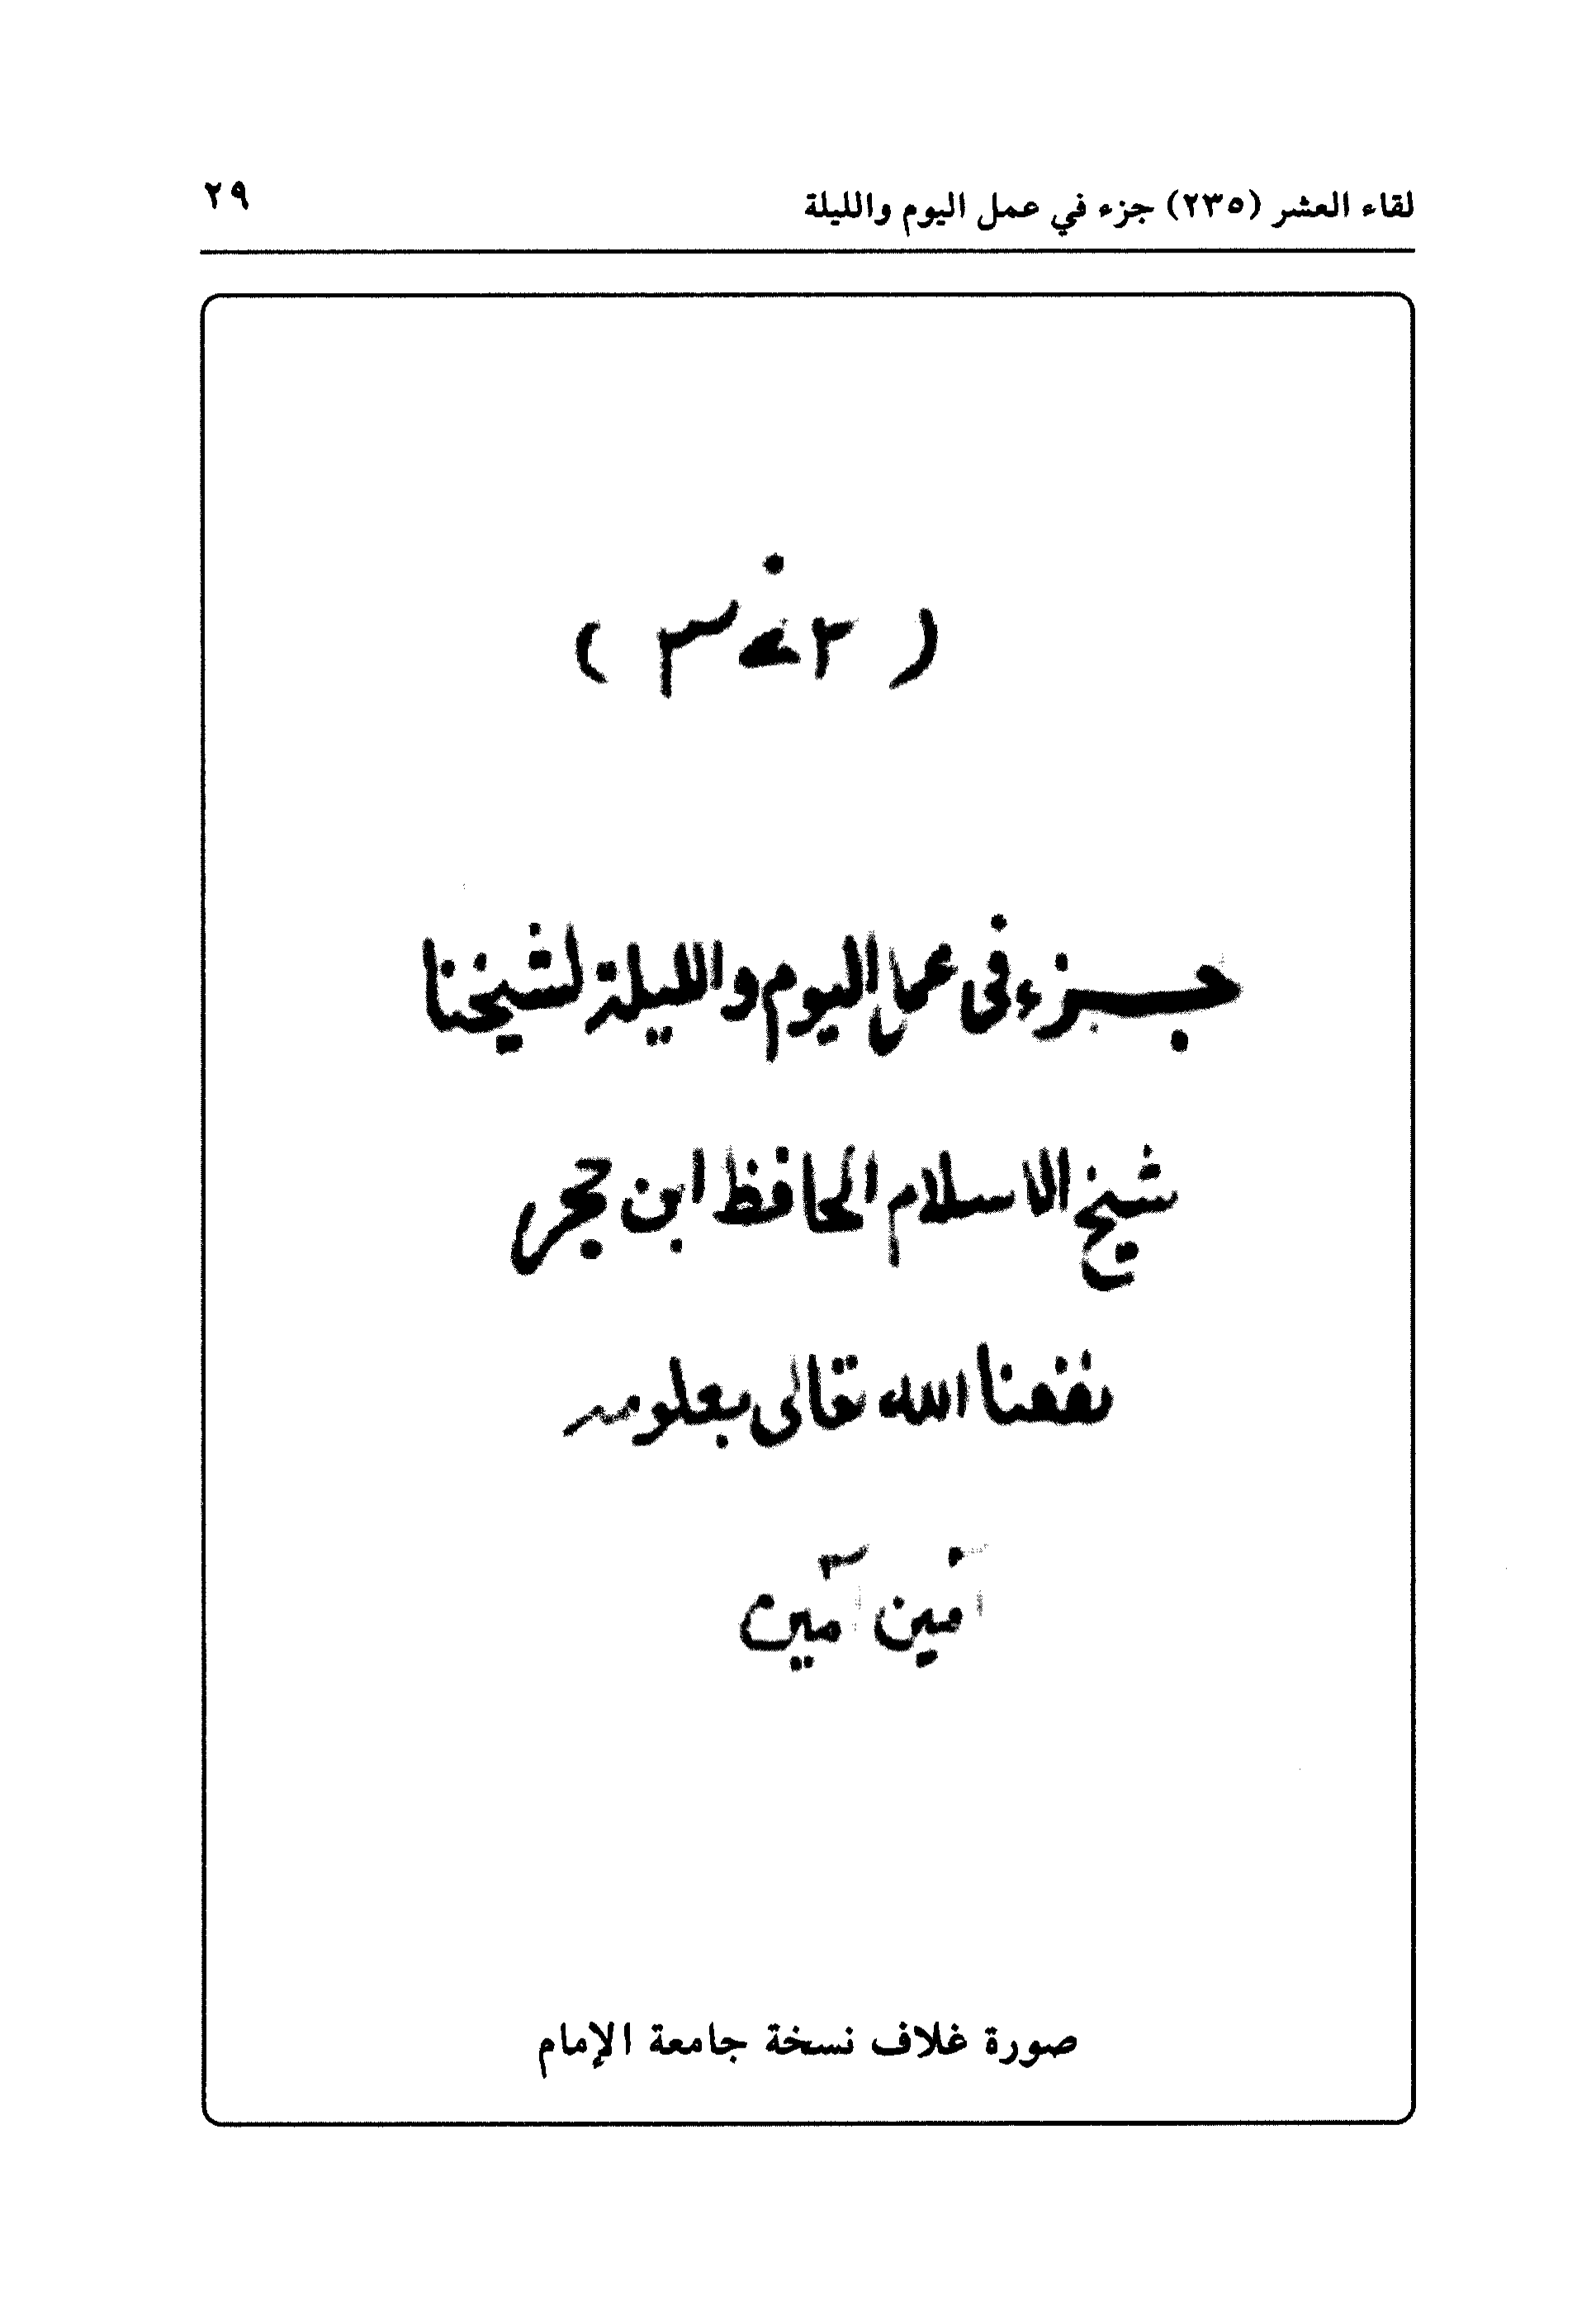 لقاء العشر (٢٣٥) جزء في عمل اليوم والليلة ٢٩
جزء فى عمل اليوم والليلة لشيخنا
شيخ الاسلام الحافظ ابن حجر
نفعنا الله تعالى بعلومه
آمين آمين
صورة غلاف نسخة جامعة الإمام